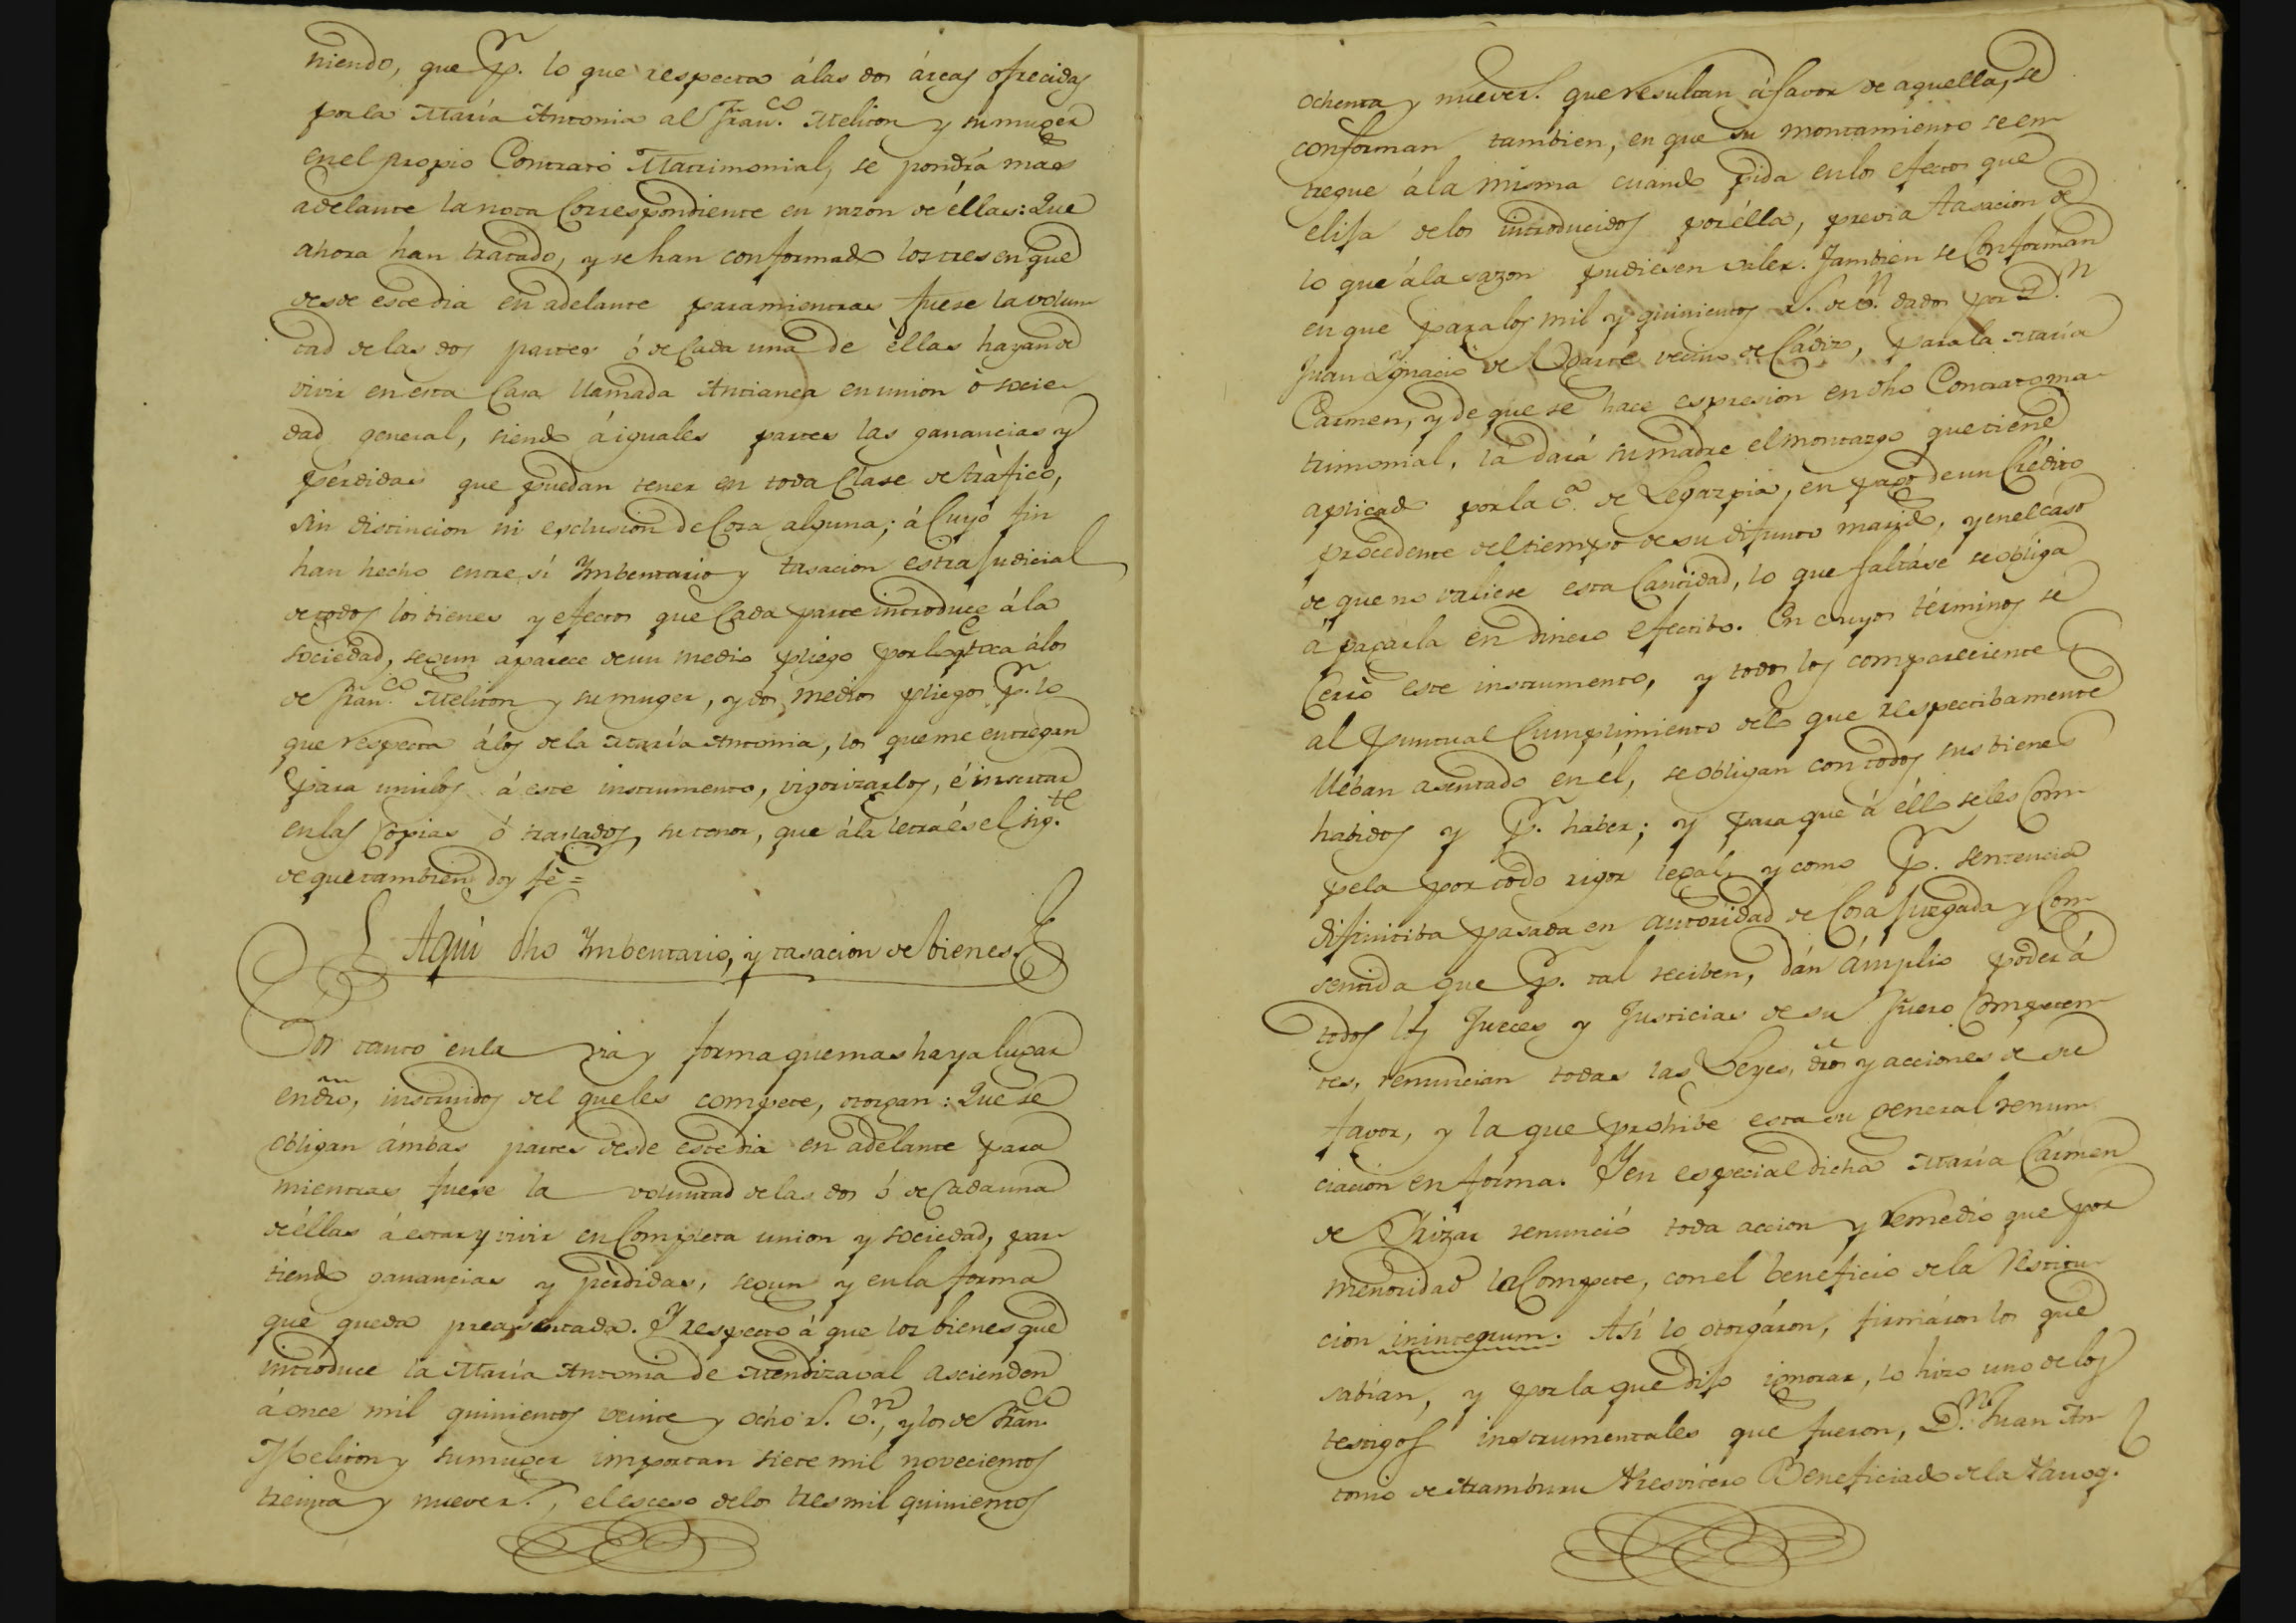 niendo, que p.r lo que respecta á las dos árcas ofrecidas
por la María Antonia al Fran.co Meliton y su muger
en el propio Contrato Matrimonial, se pondrá mas
adelante la nota Correspondiente en razon de éllas: Que
ahora han tratado, y se han conformado los tres en que
desde este dia en adelante para mientras fuese la volun-
tad de las dos partes ó de Cada una de éllas hayan de
vivir en esta Casa llamada Antianea en union ó socie-
dad general, siendo á iguales partes las ganancias y
pérdidas que puedan tener en toda Clase de tráfico,
sin distincion ni esclusion de Cosa alguna; á Cuyo fin
han hecho entre sí Ymbentario y tasacion estrajudicial
de todos los bienes y efectos que Cada parte introduce á la
sociedad, segun aparece de un medio pliego por lo q.e toca á los
de Fran.co Meliton y su muger, y dos medios pliegos p.r lo
que respecta á los de la María Antonia, los que me entregan
para unirlos á este instrumento, vigorizarlos, é insertar
en las Copias ó traslados, su tenor, que á la letra és el sig.te
de que tambien doy fé =
Aqui dho Ymbentario, y tasacion de bienes.
Por tanto en la via y forma que mas haya lugar
en dro, instruidos del que les compete, otorgan: Que se
obligan ámbas partes desde este dia en adelante para
mientras fuese la voluntad de las dos ó de Cada una
de éllas á estar y vivir en Completa union y sociedad, par-
tiendo ganancias y pérdidas, segun y en la forma
que queda preasentada. Y respecto á que los bienes que
introduce la María Antonia de Mendizaval ascienden
á once mil quinientos veinte y ocho r.s v.n, y los de Fran.co
Meliton y su muger importan siete mil novecientos
treinta y nueve r.s, el esceso de los tres mil quinientos
ochenta y nueve r.s que resultan á favor de aquella, se
conforman tambien, en que su montamiento se en-
tregue á la misma cuando pida en los efectos que
elija de los introducidos por élla, previa tasacion de
lo que á la sazon pudiesen valer. Tambien se Conforman
en que para los mil y quinientos r.s de v.n dados por D.n
Juan Ygnacio de Ugarte vecino de Cádiz, para la María
Carmen, y de que se hace espresion en dho Contrato ma-
trimonial, la dará su madre el montazgo que tiene
aplicado por la v.a de Legazpia, en pago de un Crédito
procedente del tiempo de su difunto marido, y en el caso
de que no valiese esta Cantidad, lo que faltáse se obliga
á pagarla en dinero efectibo. En cuyos términos se
Cerró este instrumento, y todos los comparecientes
al puntual Cumplimiento de lo que respectibamente
lleban asentado en él, se obligan con todos sus bienes
habidos y p.r haber; y para que á éllo se les Com-
pela por todo rigor legal, y como p.r sentencia
difinitiba pasada en autoridad de Cosa Juzgada y Con-
sentida que p.r tal reciben, dán ámplio poder á
todos los Jueces y Justicias de su fuero Competen-
tes, renuncian todas las Leyes, dros y acciones de su
favor, y la que prohibe esta su general renun-
ciacion en fórma. Y en especial dicha María Cármen
de Orizar renunció toda accion y remedio que por
menoridad la Compete, con el beneficio de la restitu-
cion inintegrum. Así lo otorgáron, firmáron los que
sabían, y por la que dijo ignorar, lo hizo uno de los
testigos instrumentales que fueron, D.n Juan An-
tonio de Aramburu Presvitero Beneficiado de la Parroq.